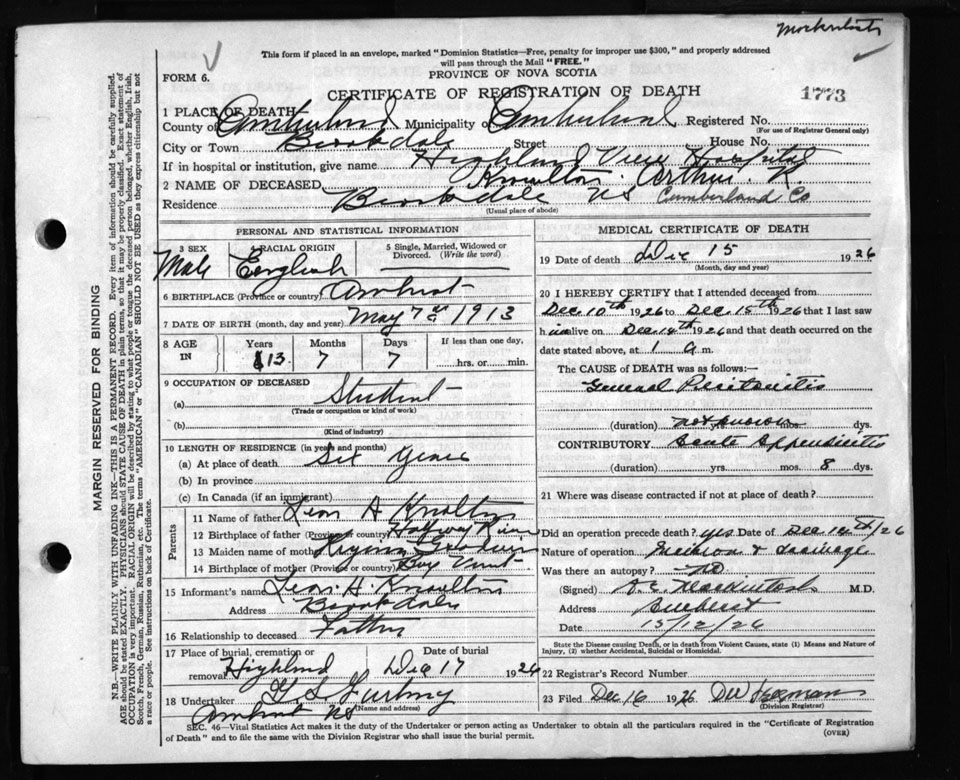 This form if placed in an envelope, marked "Dominion Statistics—Free, penalty for improper use $300," and properly addressed
will pass through the Mail "FREE."
FORM 6.
PROVINCE OF NOVA SCOTIA
CERTIFICATE OF REGISTRATION OF DEATH
1773
1 PLACE OF DEATH
County of Cumberland Municipality of Cumberland Registered No.
(For use of Registrar General only)
City or Town Brookdale Street House No.
If in hospital or institution, give name Highland View Hospital
2 NAME OF DECEASED Knowlton Arthur R.
Residence Brookdale NS Cumberland Co
(Usual place of abode)
MARGIN RESERVED FOR BINDING
N.B.—WRITE PLAINLY WITH UNFADING INK—THIS IS A PERMANENT RECORD. Every item of information should be carefully supplied.
AGE should be stated EXACTLY. PHYSICIANS should STATE CAUSE OF DEATH in plain terms, so that it may be properly classified. Exact statement of
OCCUPATION is very important. RACIAL ORIGIN will be described by stating to what people or tongue the deceased person belonged, whether English, Irish,
Scotch, French, German, Russian, Ruthenian, etc. The terms "AMERICAN" or "CANADIAN" SHOULD NOT BE USED as they express citizenship but not
a race or people. See instructions on back of Certificate.
PERSONAL AND STATISTICAL INFORMATION
3 SEX 4 RACIAL ORIGIN 5 Single, Married, Widowed or
Divorced. (Write the word)
Male English
6 BIRTHPLACE (Province or country) Amherst
7 DATE OF BIRTH (month, day and year) May 7th 1913
8 AGE IN Years Months Days If less than one day,
13 7 7 hrs. or min.
9 OCCUPATION OF DECEASED
(a) Student
(Trade or occupation or kind of work)
(b)
(Kind of industry)
10 LENGTH OF RESIDENCE (in years and months)
(a) At place of death Six years
(b) In province
(c) In Canada (if an immigrant)
Parents
11 Name of father Leon A Knowlton
12 Birthplace of father (Province or country) River
13 Maiden name of mother
14 Birthplace of mother (Province or country)
15 Informant's name Leon A. Knowlton
Address Brookdale
16 Relationship to deceased Father
17 Place of burial, cremation or Date of burial
removal Highland Dec 17 1926
18 Undertaker
Amherst NS (Name and address)
MEDICAL CERTIFICATE OF DEATH
19 Date of death Dec 15 1926
(Month, day and year)
20 I HEREBY CERTIFY that I attended deceased from
Dec 10th 1926 to Dec 15th 1926 that I last saw
him alive on Dec 14th 1926 and that death occurred on
date stated above, at 1 a m.
The CAUSE OF DEATH was as follows:
General Peritonitis
(duration) not known
CONTRIBUTORY Acute Appendicitis
(duration) yrs. mos. 8 dys.
21 Where was disease contracted if not at place of death?
Did an operation precede death? yes Date of Dec /26
Nature of operation Incision & drainage
Was there an autopsy? no
(Signed) Mackintosh M.D.
Address Amherst
Date 15/12/26
State the Disease causing Death, or in death from Violent Causes, state (1) Means and Nature of
Injury, (2) whether Accidental, Suicidal or Homicidal.
22 Registrar's Record Number
23 Filed Dec 16 1926
(Division Registrar)
SEC. 46—Vital Statistics Act makes it the duty of the Undertaker or person acting as Undertaker to obtain all the particulars required in the "Certificate of Registration
of Death" and to file the same with the Division Registrar who shall issue the burial permit.
(OVER)